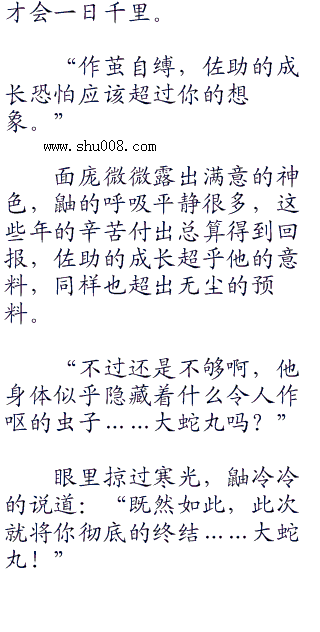 才会一日千里。
“作茧自缚，佐助的成
长恐怕应该超过你的想
象。”
www.shu008.com
面庞微微露出满意的神
色，鼬的呼吸平静很多，这
些年的辛苦付出总算得到回
报，佐助的成长超乎他的意
料，同样也超出无尘的预
料。
“不过还是不够啊，他
身体似乎隐藏着什么令人作
呕的虫子……大蛇丸吗？”
眼里掠过寒光，鼬冷冷
的说道：“既然如此，此次
就将你彻底的终结……大蛇
丸！”